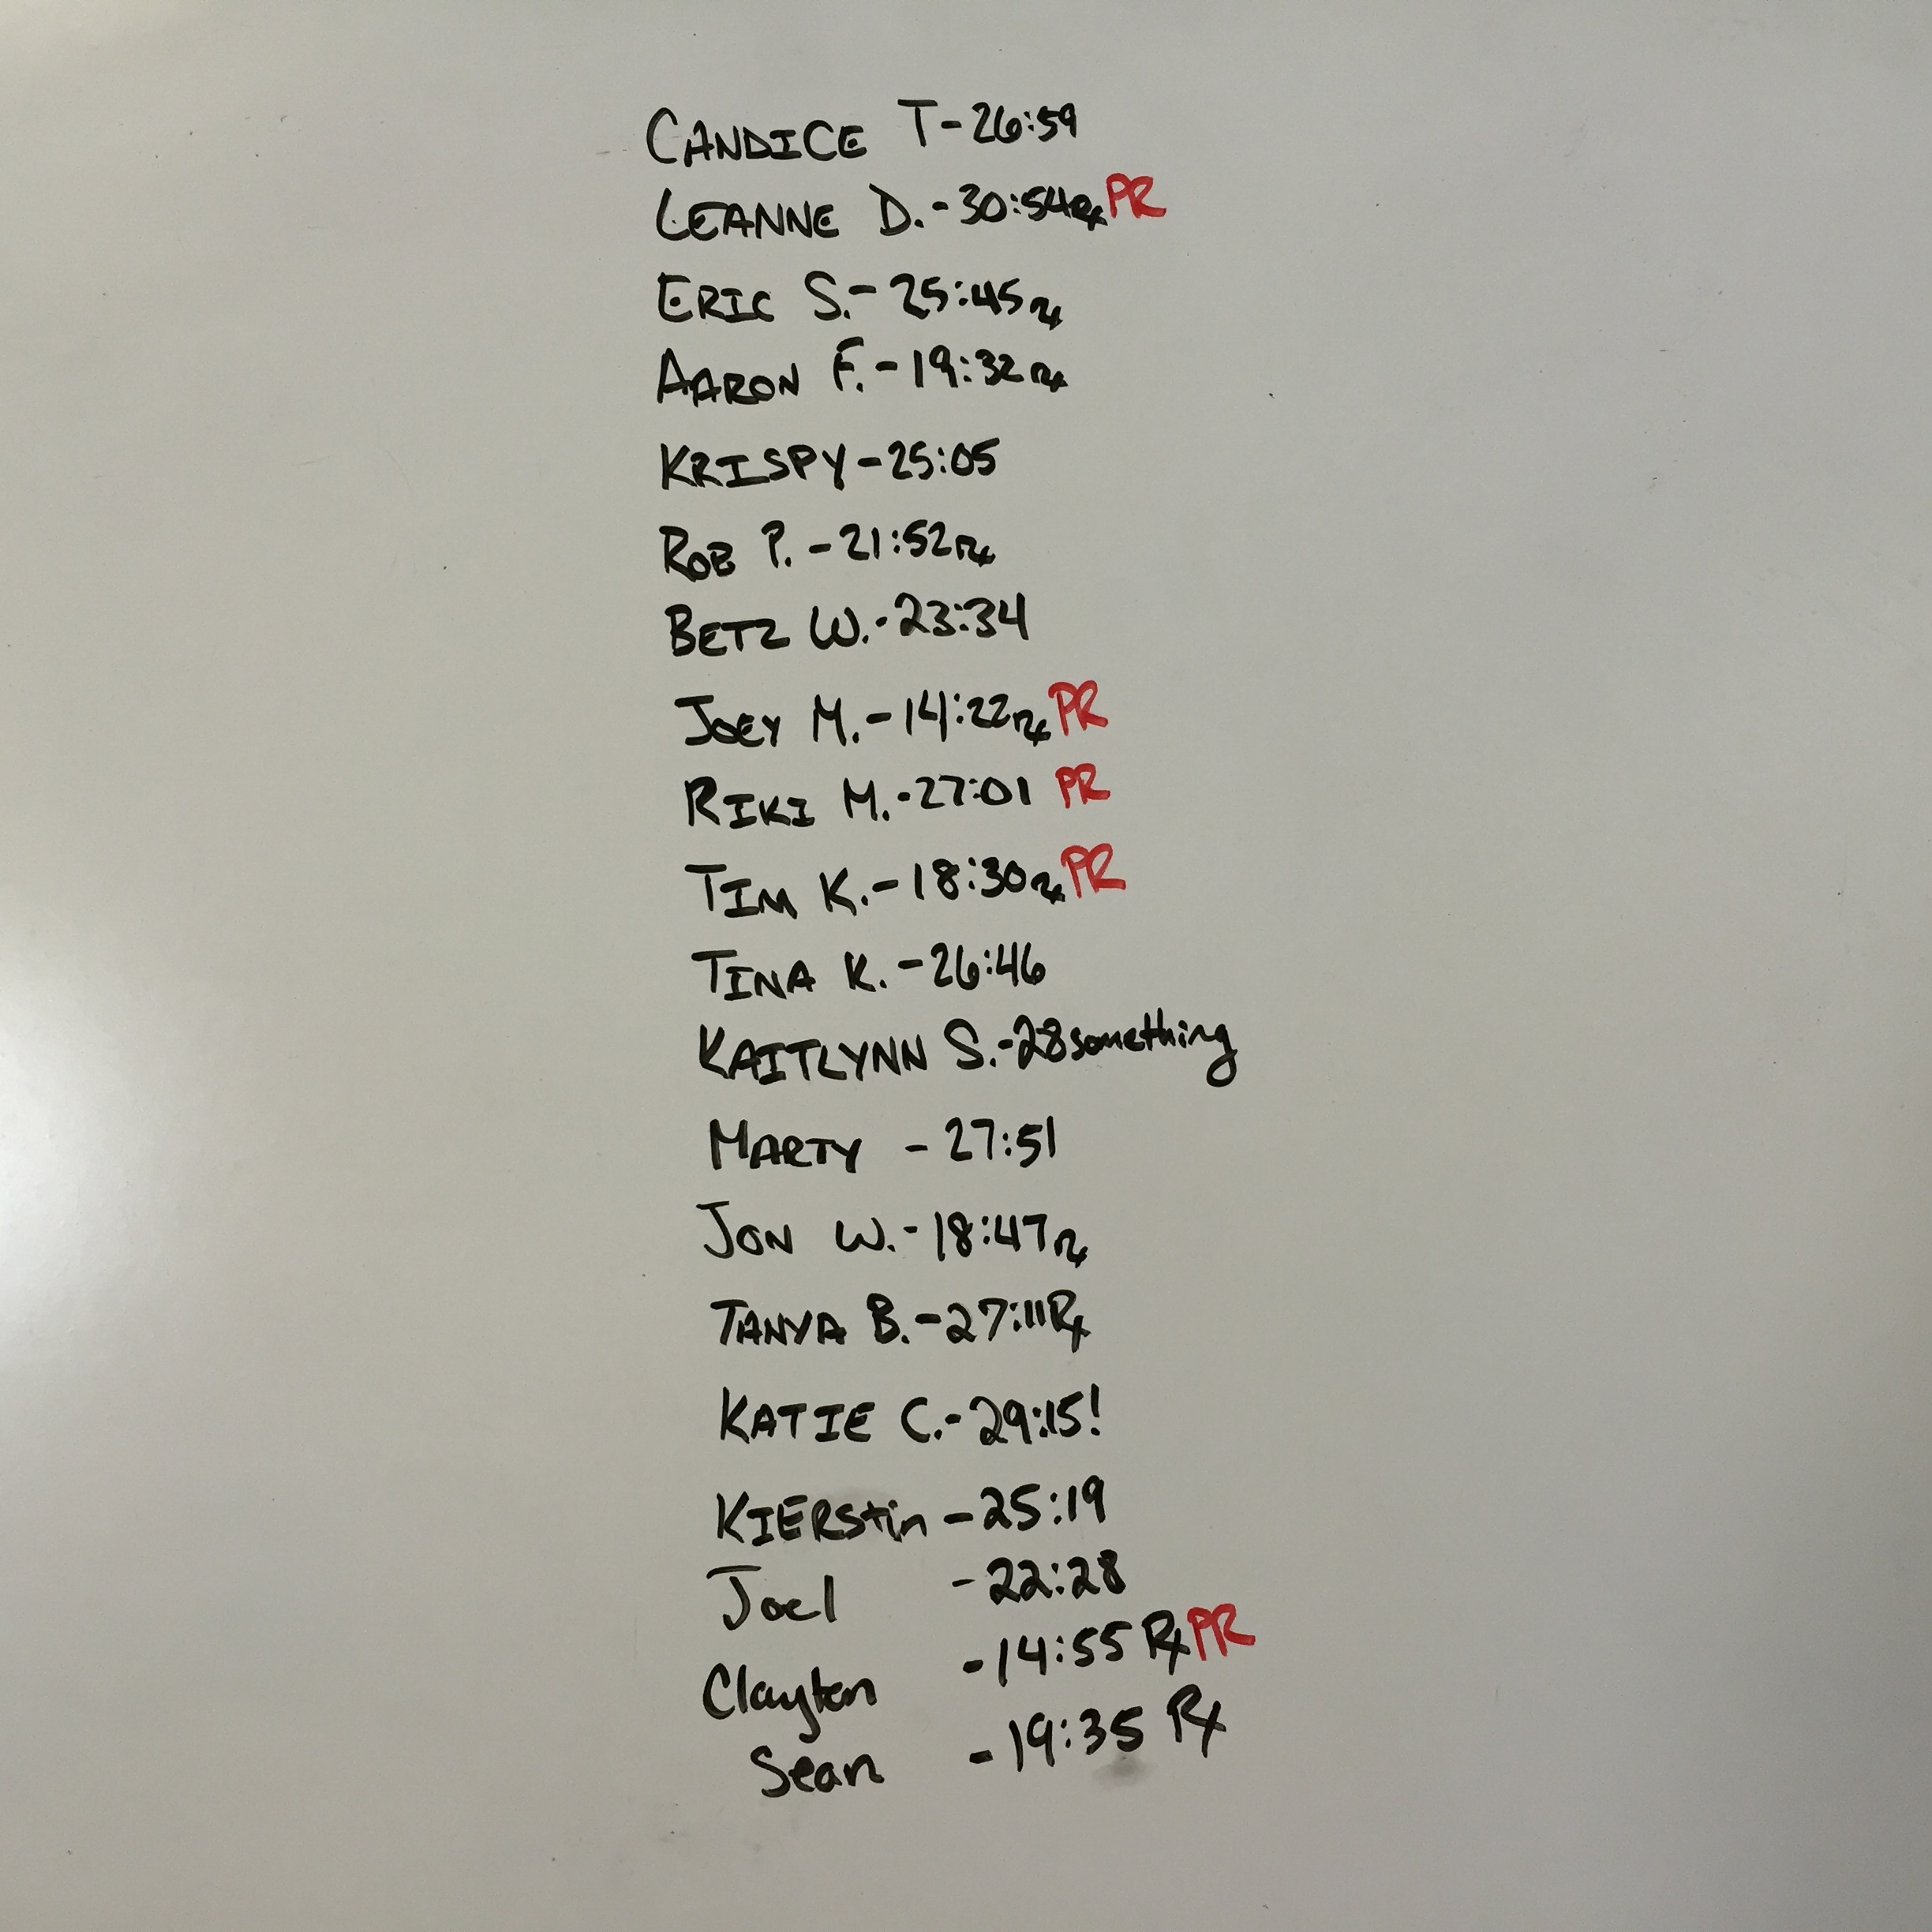 CANDICE T-26:59
LEANNE D.-30:54 Rx PR
ERIC S.-25:45 Rx
AARON F.-19:32 Rx
KRISPY-25:05
ROB P.-21:52 Rx
BETZ W.-23:34
JOEY M.-14:22 Rx PR
RIKI M.-27:01 PR
TIM K.-18:30 Rx PR
TINA K.-26:46
KAITLYNN S.-28something
MARTY -27:51
JON W.-18:47 Rx
TANYA B.-27:11 Rx
KATIE C.-29:15!
KIERStin -25:19
Joel -22:28
Clayton -14:55 Rx PR
Sean -19:35 Rx